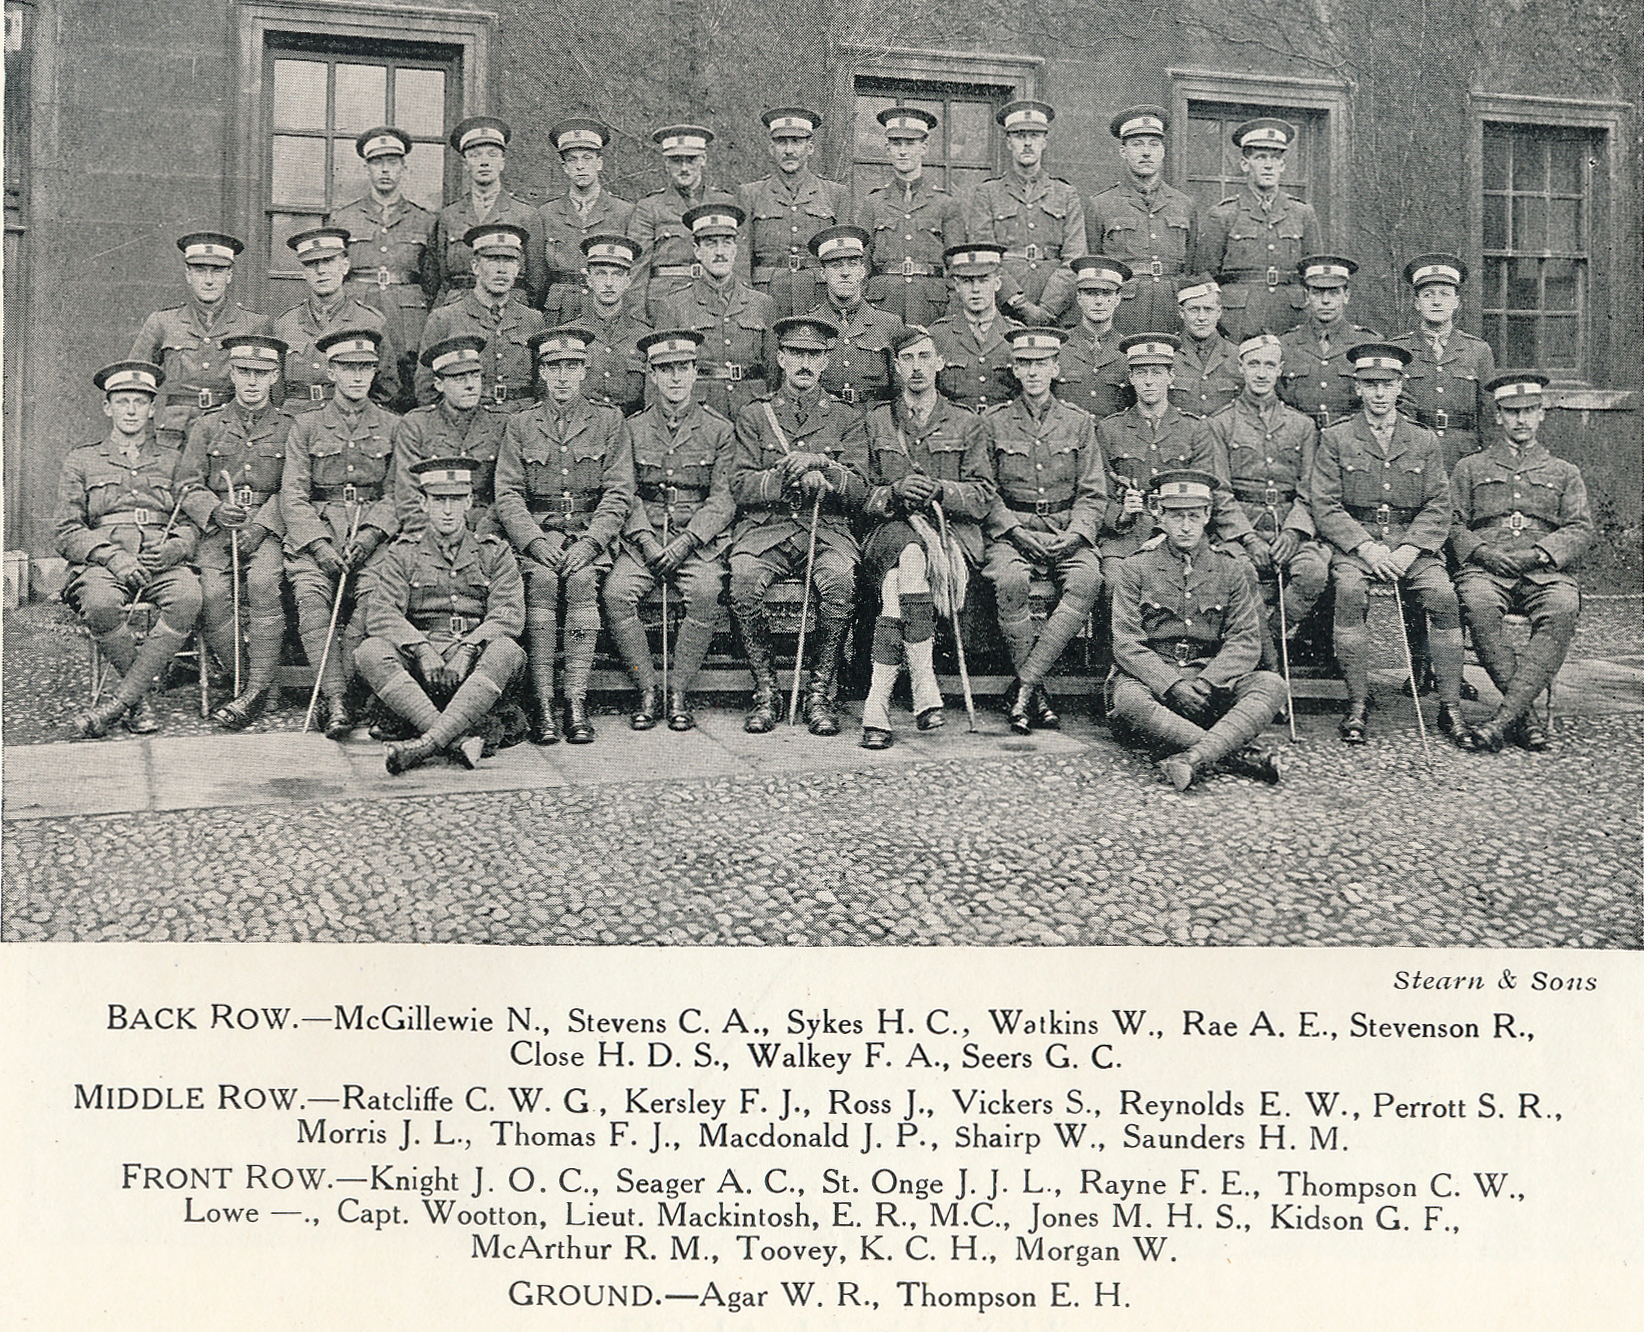 Stearn & Sons
BACK ROW.—McGillewie N., Stevens C. A., Sykes H. C., Watkins W., Rae A. E., Stevenson R.,
Close H. D. S., Walkey F. A., Seers G. C.
MIDDLE ROW.—Ratcliffe C. W. G., Kersley F. J., Ross J., Vickers S., Reynolds E. W., Perrott S. R.,
Morris J. L., Thomas F. J., Macdonald J. P., Shairp W., Saunders H. M.
FRONT ROW.—Knight J. O. C., Seager A. C., St. Onge J. J. L., Rayne F. E., Thompson C. W.,
Lowe —., Capt. Wootton, Lieut. Mackintosh, E. R., M.C., Jones M. H. S., Kidson G. F.,
McArthur R. M., Toovey, K. C. H., Morgan W.
GROUND.—Agar W. R., Thompson E. H.